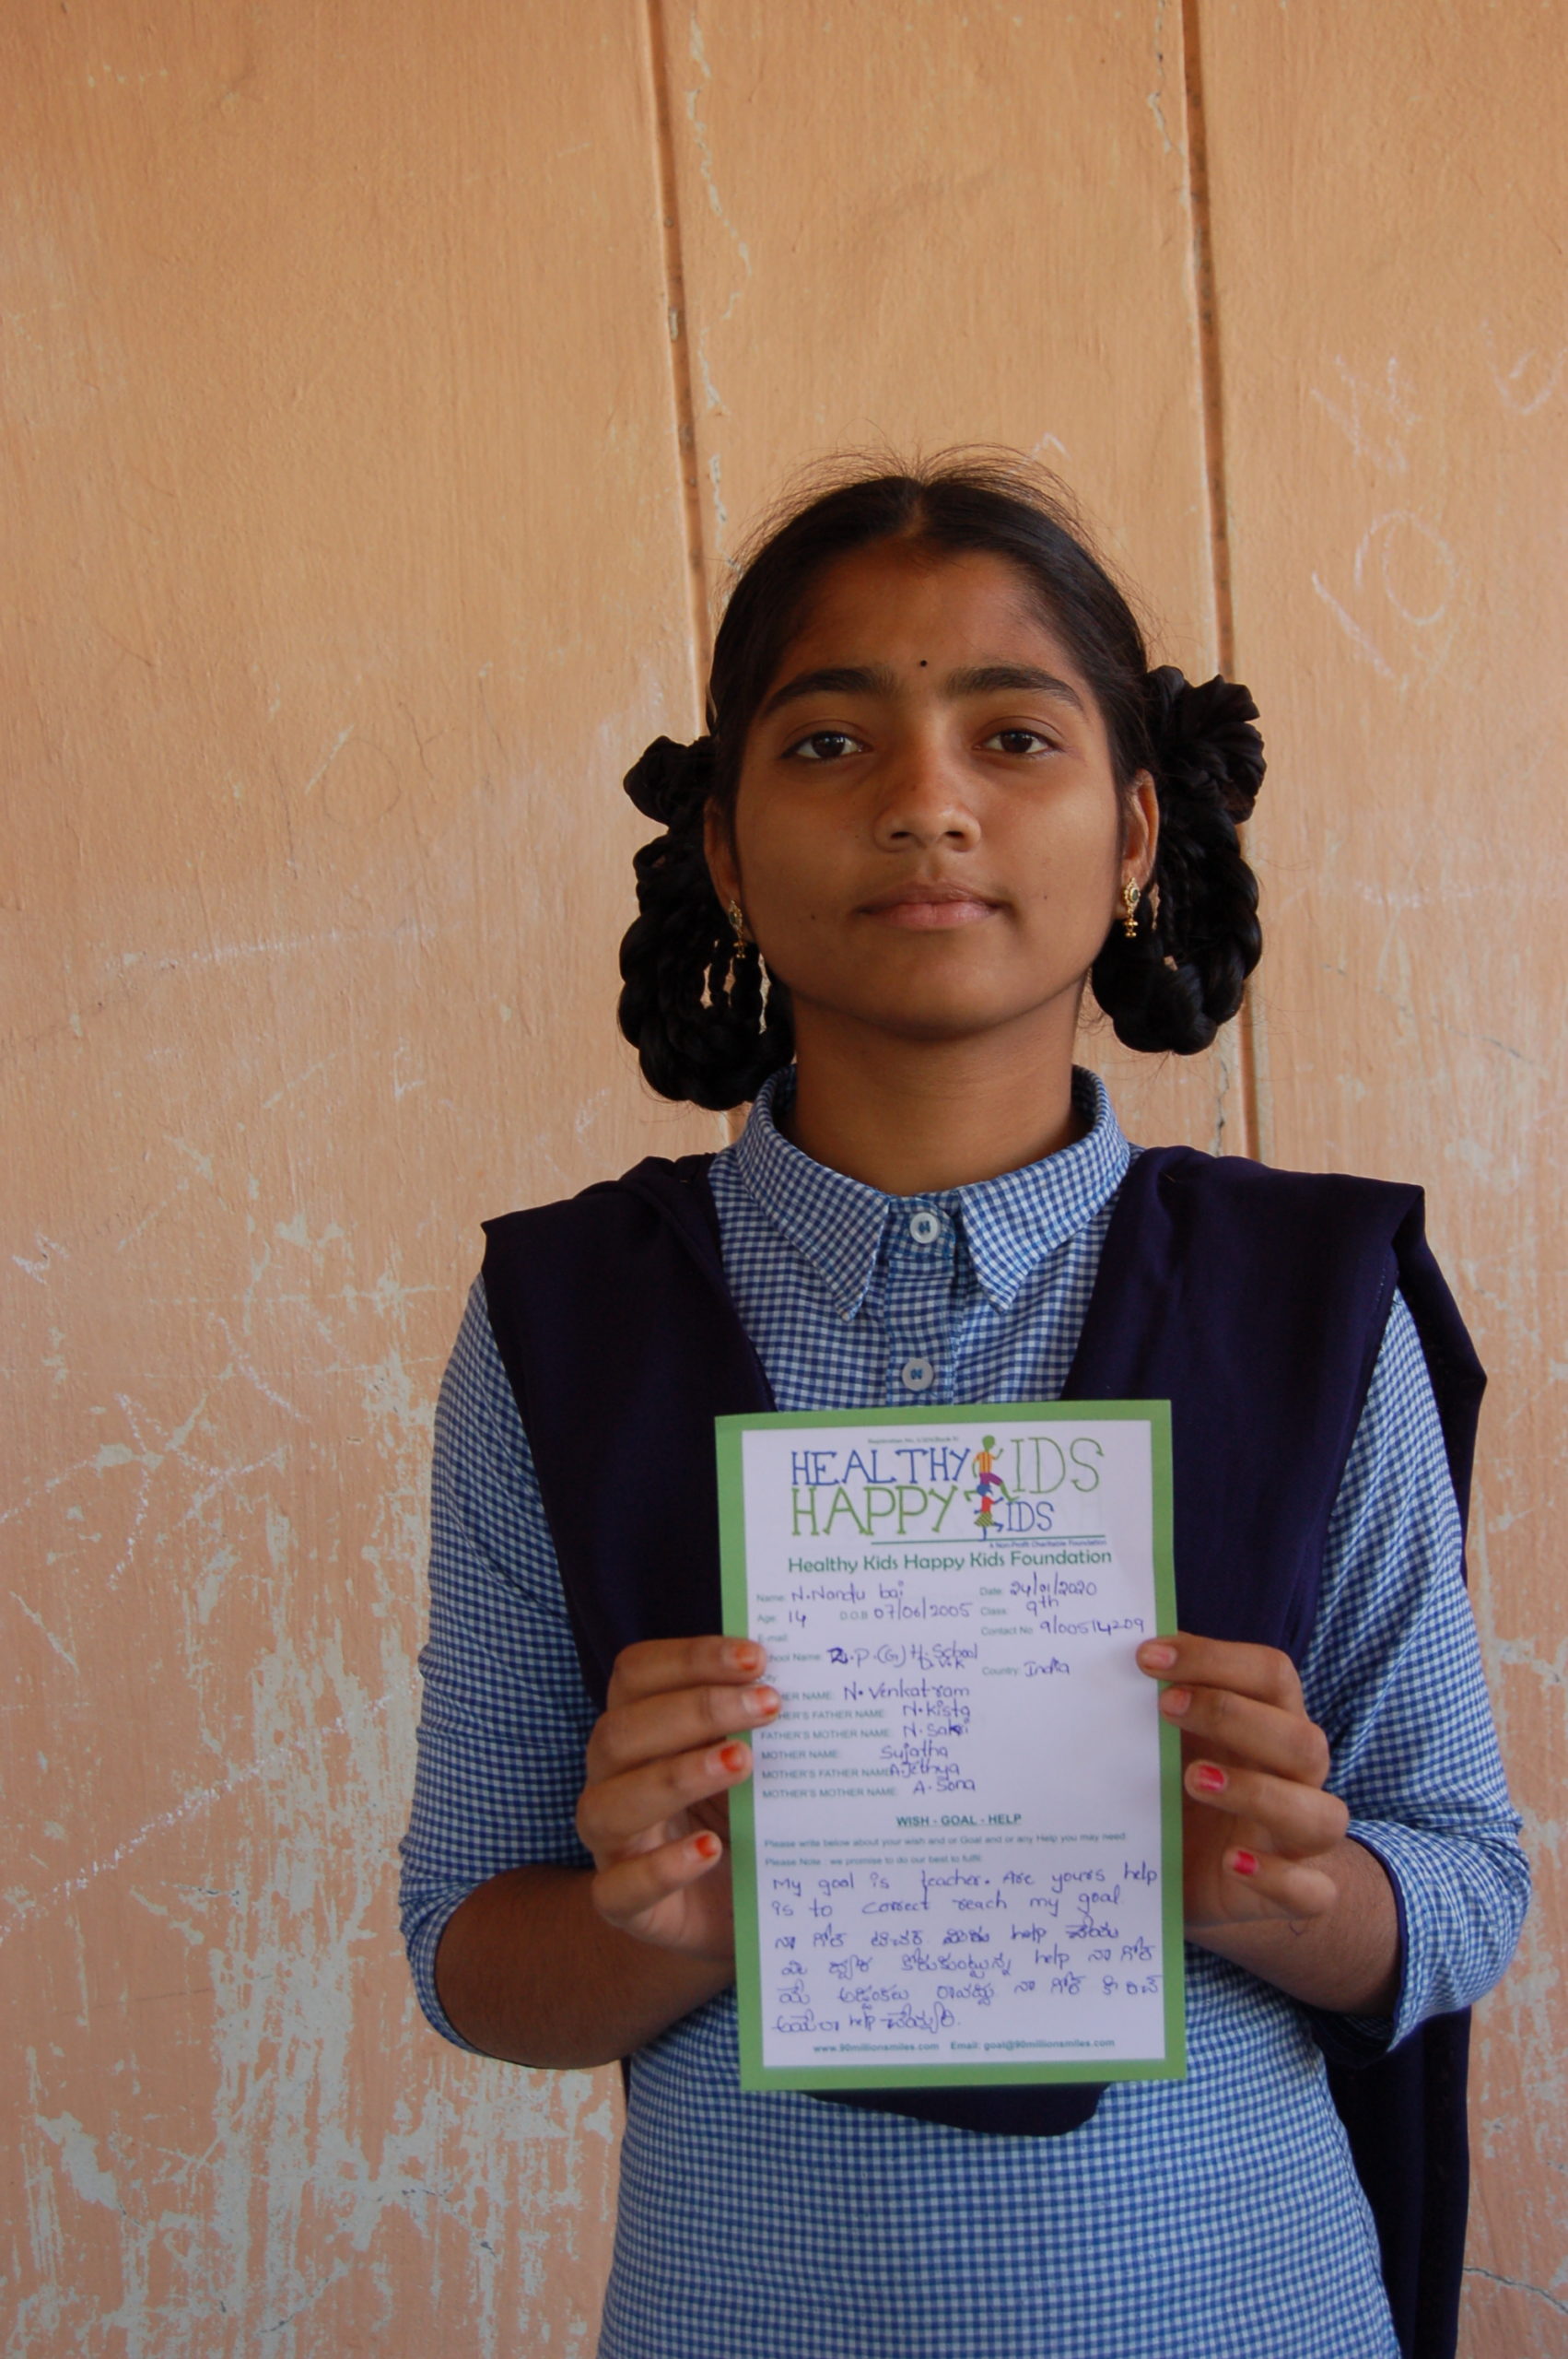 HEALTHY KIDS
HAPPY KIDS
A Non-Profit Charitable Foundation
Healthy Kids Happy Kids Foundation
Name: N.Nandu bai Date: 24/01/2020
Age: 14 D.O.B 07/06/2005 Class: 9th
E-mail: Contact No 9100514209
School Name: Z.P.(G) H.School
Country: India
NAME: N. Venkatram
FATHER NAME: N. kista
FATHER'S MOTHER NAME: N. Sakri
MOTHER NAME: Sujatha
MOTHER'S FATHER NAME A.Jethya
MOTHER'S MOTHER NAME: A. Sona
WISH - GOAL - HELP
Please write below about your wish and or Goal and or any Help you may need.
Please Note : we promise to do our best to fulfil.
My goal is teacher. Are yours help
is to correct reach my goal.
నా గోల్ టీచర్ మీరు help చేయి
మీ ద్వార కోరుకుంటున్న help నా గోల్
మే అడ్డంకులు రావద్దు నా గోల్ కి రిచ్
అయేలా help చేయ్యాలి.
www.90millionsmiles.com Email: goal@90millionsmiles.com